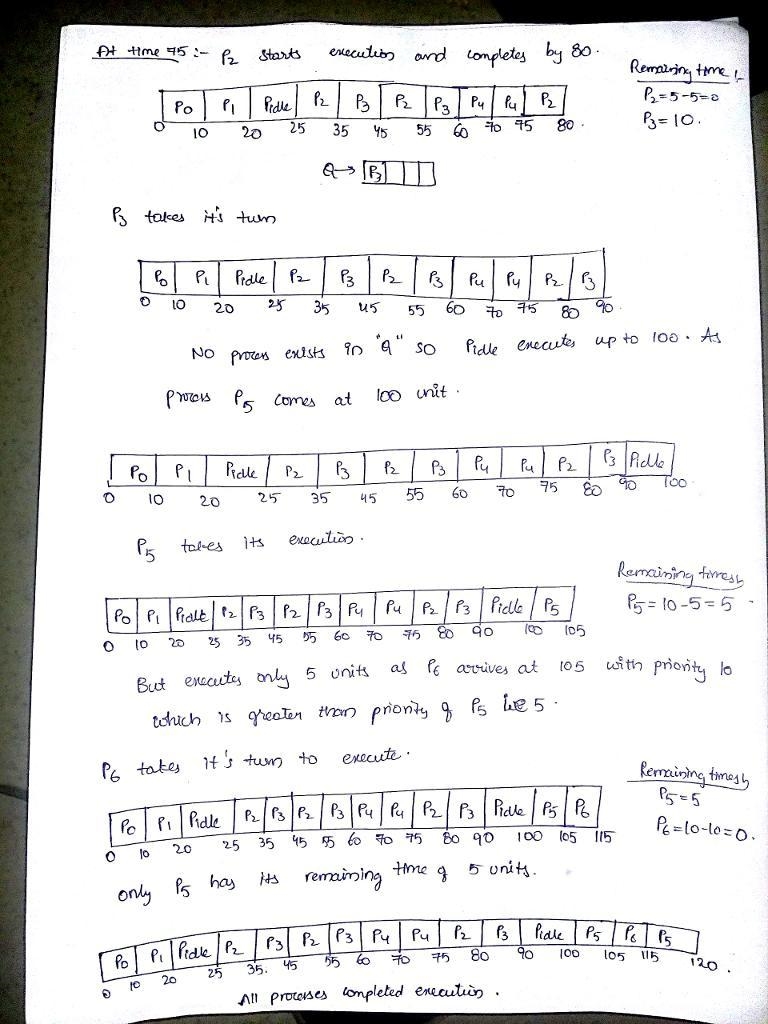 At time 75 :- P2 starts execution and completes by 80.
Remaining time :-
P2 = 5-5=0
P3 = 10.
P0 P1 Pidle P2 P3 P2 P3 P4 P4 P2
0 10 20 25 35 45 55 60 70 75 80.
Q→ P3
P3 takes it's turn
P0 P1 Pidle P2 P3 P2 P3 P4 P4 P2 P3
0 10 20 25 35 45 55 60 70 75 80 90.
No process exists in "Q" so Pidle executes up to 100. As
process P5 comes at 100 unit.
P0 P1 Pidle P2 P3 P2 P3 P4 P4 P2 P3 Pidle
0 10 20 25 35 45 55 60 70 75 80 90 100.
P5 takes its execution.
Remaining times
P5 = 10-5 = 5
P0 P1 Pidle P2 P3 P2 P3 P4 P4 P2 P3 Pidle P5
0 10 20 25 35 45 55 60 70 75 80 90 100 105
But executes only 5 units as P6 arrives at 105 with priority 10
which is greater than priority of P5 i.e 5.
P6 takes it's turn to execute.
Remaining times
P5 = 5
P6 = 10-10=0.
P0 P1 Pidle P2 P3 P2 P3 P4 P4 P2 P3 Pidle P5 P6
0 10 20 25 35 45 55 60 70 75 80 90 100 105 115
only P5 has its remaining time of 5 units.
P0 P1 Pidle P2 P3 P2 P3 P4 P4 P2 P3 Pidle P5 P6 P5
0 10 20 25 35. 45 55 60 70 75 80 90 100 105 115 120.
All processes completed execution.